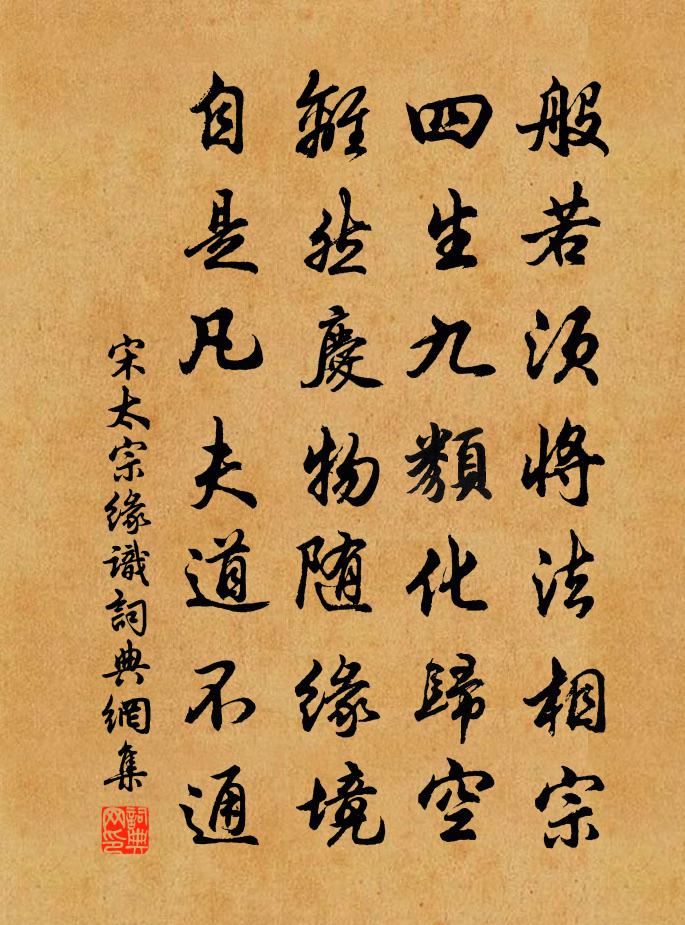 般若須將法相宗
四生九類化歸空
雖然慶物隨緣境
自是凡夫道不通
宋太宗緣識詞典網集
詞典网印